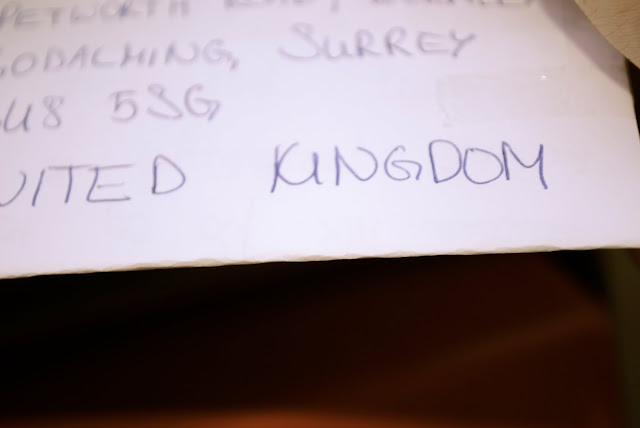 PETWORTH ROAD,
GODALMING, SURREY
GU8 5SG
UNITED KINGDOM